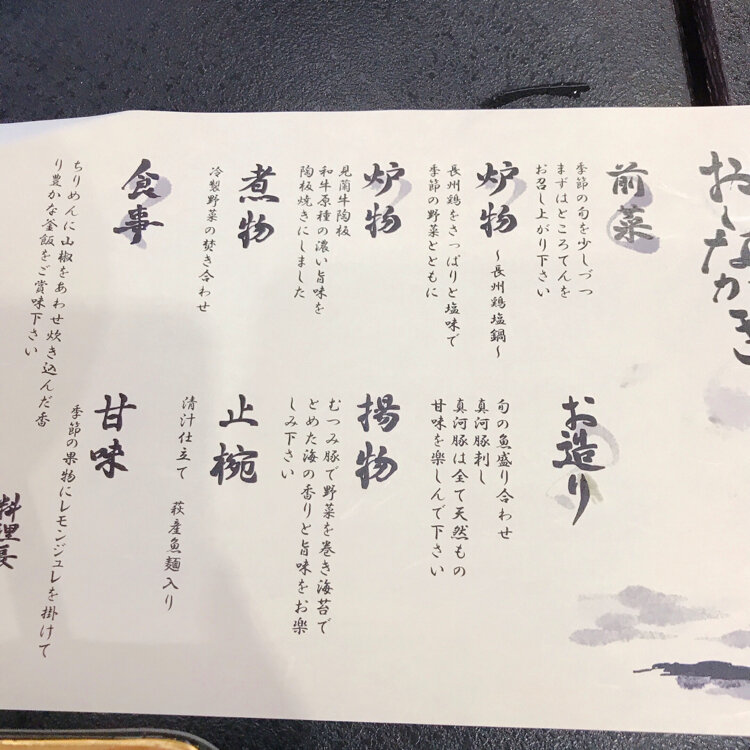 おしながき
前菜
季節の旬を少しづつ
まずはところてんを
お召し上がり下さい
お造り
旬の魚盛り合わせ
真河豚刺し
真河豚は全て天然もの
甘味を楽しんで下さい
炉物 ～長州鶏塩鍋～
長州鶏をさっぱりと塩味で
季節の野菜とともに
炉物
見蘭牛陶板
和牛原種の濃い旨味を
陶板焼きにしました
揚物
むつみ豚で野菜を巻き海苔で
とめた海の香りと旨味をお楽
しみ下さい
煮物
冷製野菜の焚き合わせ
止椀
清汁仕立て 萩産魚麺入り
食事
ちりめんに山椒をあわせ炊き込んだ香
り豊かな釜飯をご賞味下さい
甘味
季節の果物にレモンジュレを掛けて
料理長